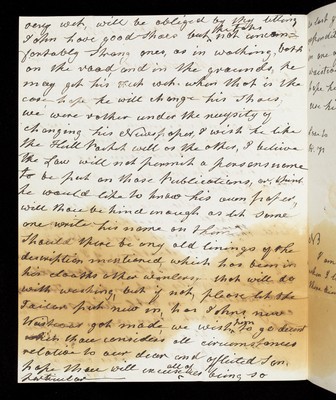 very wet, will be obliged by thy letting
John have good Shoes but not uncom-
fortably Strong ones, as in walking, both
on the road and in the grounds, he
may get his feet wet. when that is the
case hope he will change his Shoes,
we were rather under the necessity of
changing his Newspaper, I wish he like
the Hull Packet will as the other, I believe
the Law will not permit a persons name
to be put on those Publications, or, think
he would like to know his own paper,
will thou be kind enough as let some
one write his name on them
Should there be any old linings of the
description mentioned which has been in
his cloaths other winters that will do
with washing, but if not, please let the
Tailor put new in, has John's new
Waistcoat got made we wish him to go decent
which thou considers all circumstances
relative to our dear and afflicted Son,
hope thou will excuse all of us being so
Particular